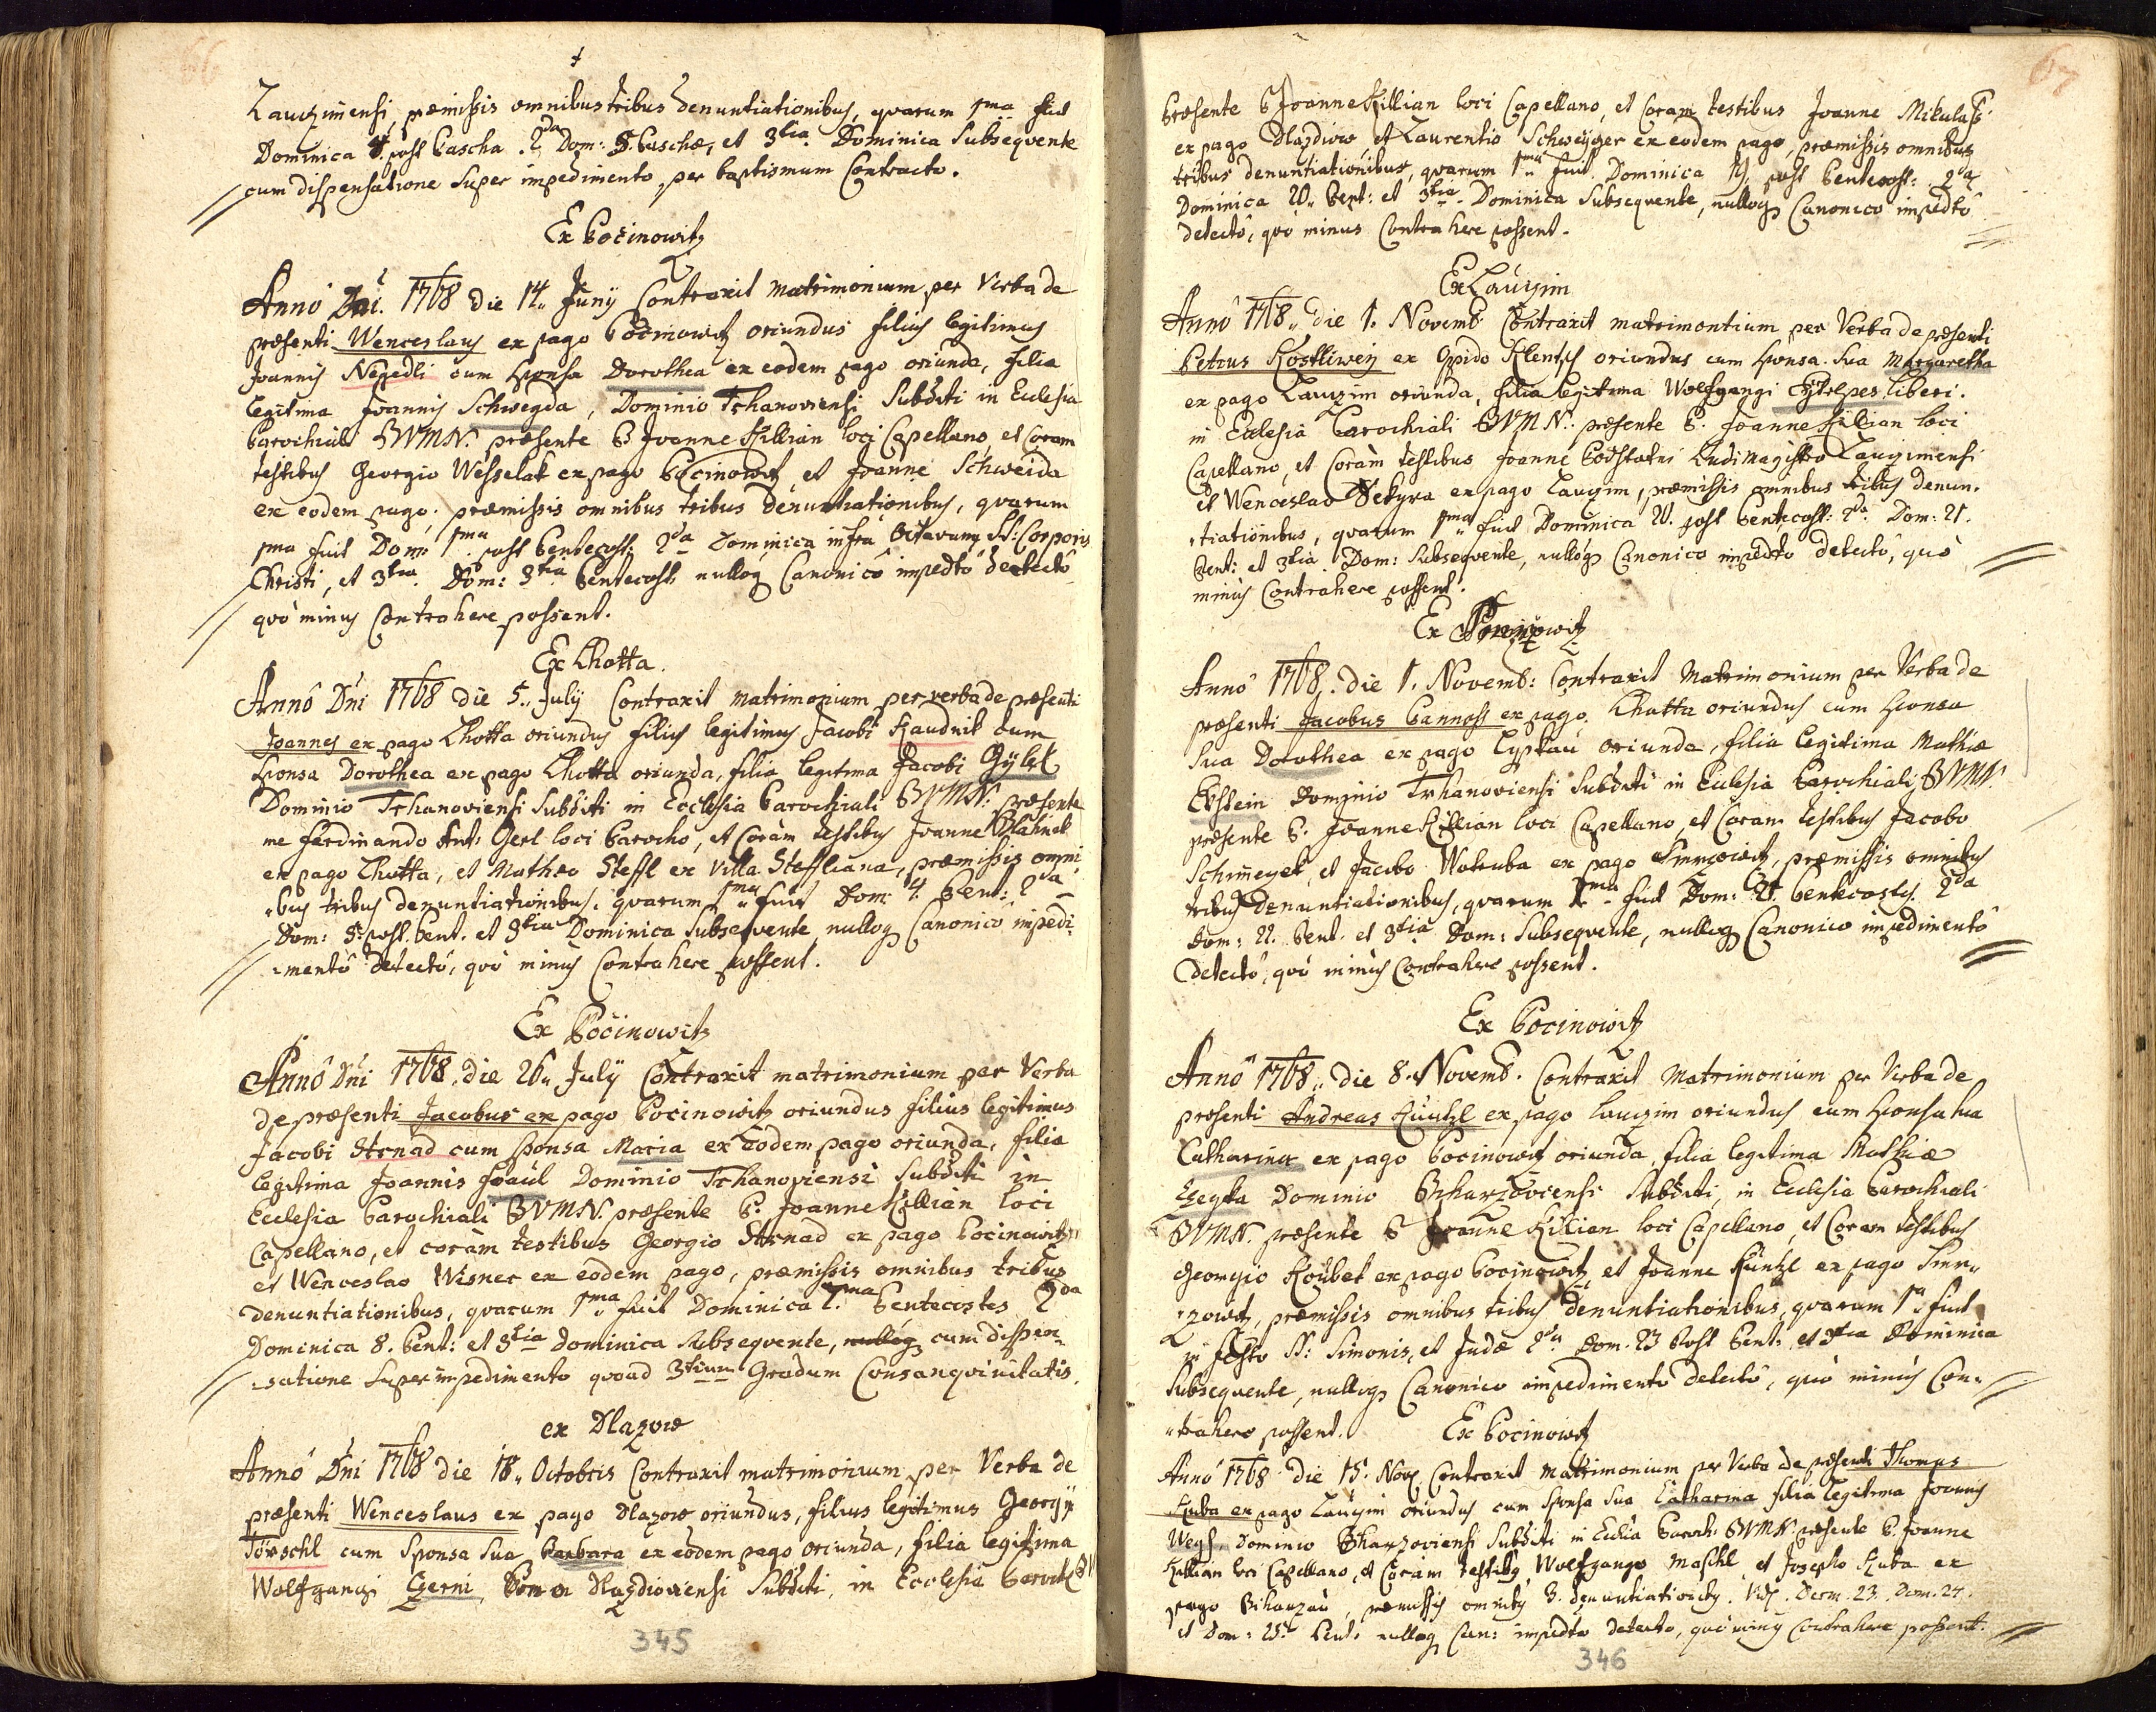 66
Lauczimensi, præmissis omnibus tribus denuntiationibus, quarum 1ma fuit
Dominica 4. post Pascha. 2da Dom: 5. Paschæ, et 3tia Dominica Subsequente
cum dispensatione Super impedimento, per baptismum Contracto.
Ex Pocinowitz
Anno Dni. 1768 die 14. Junÿ Contraxit matrimonium per Verba de
præsenti Wenceslaus ex pago Pocinowitz oriundus filius legitimus
Joannis Negedli cum sponsa Dorothea ex eodem pago oriunda, filia
legitima Joannis Schwegda, Dominio Trhanoviensi Subditi in Eclesia
Parochiali BVMN. præsente P. Joanne Killian loci Capellano, et Coram
testibus Georgio Wesselak ex pago Pocinowitz, et Joanne Schweida
ex eodem pago; præmissis omnibus tribus denuntiationibus, quarum
1ma fuit Dom: 1ma post Pentecost: 2da Dominica infra Octavam SS: Corporis
Christi, et 3tia Dom: 3tia Pentecost: nulloq Canonicô impedtô detectô
quô minus Contrahere possent.
Ex Lhotta.
Annô Dni 1768 die 5. Julÿ Contraxit matrimonium per verba de præsenti
Joannes ex pago Lhotta oriundus filius legitimus Jacobi Kaudnik cum
sponsa Dorothea ex pago Lhotta oriunda, filia legitima Jacobi Gÿlek
Dominio Trhanoviensi Subditi in Ecclesia Parochiali BVMN: præsente
me Ferdinando Ant: Gerl loci Parocho, et Coràm testibus Joanne Blahnik
ex pago Lhotta, et Matheo Steffl ex Villa Steffliana, præmissis omni
bus tribus denuntiationibus, quarum 1ma fuit Dom: 4. Pent: 2da
Dom: 5. post Pent. et 3tia Dominica Subsequente, nulloq Canonicô impedi
mentô detectô, quô minus Contrahere possent.
Ex Pocinowitz
Annô Dni 1768. die 26. Julÿ Contraxit matrimonium per Verba
de præsenti Jacobus ex pago Pocinowitz oriundus filius legitimus
Jacobi Strnad cum sponsa Maria ex eodem pago oriunda, filia
legitima Joannis Joaul Dominio Trhanoviensi Subditi in
Ecclesia Parochiali BVMN. præsente P. Joanne Killian loci
Capellano, et coràm testibus Georgio Strnad ex pago Pocinowitz
et Wenceslao Wisner ex eodem pago, præmissis omnibus tribus
denuntiationibus, quarum 1ma fuit Dominica 7ma Pentecostes 2da
Dominica 8. Pent: et 3tia Dominica Subsequente, nulloq cum dispen
satione Super impedimento quoad 3tium Gradum Consanqvinitatis.
ex Dlazow
Annô Dni 1768 die 18. Octobris Contraxit matrimonium per Verba de
præsenti Wenceslaus ex pago Dlazow oriundus, filius legitimus Georgÿ
Törschl cum Sponsa Sua Barbara ex eodem pago oriunda, filia legitima
Wolfgangi Czerni, Domin Dlazdioviensi Subditi, in Ecclesia Paroch: BV
345
67
Præsente P Joanne Killian loci Capellano, et Coram testibus Joanne Mikulass
ex pago Dlazdiow, et Laurentio Schweÿger ex eodem pago, præmissis omnibus
tribus denuntiationibus, quarum 1ma fuit Dominica 19. post Pentecost: 2da
Dominica 20. Pent: et 3tia Dominica Subsequente, nulloq Canonicô impedtô
detectô, quô minus Contrahere possent.
Ex Lauczim
Annô 1768. die 1. Novemb. Contraxit matrimontium per Verba de præsenti
Petrus Kostliwey ex Oppido Klentsch oriundus cum sponsa sua Margaretha
ex pago Lauczim oriunda, filia legitima Wolfgangi Cytrpes liberi.
in Ecclesia Parochiali BVMN. præsente P. Joanne Killian loci
Capellano, et Coràm testibus Joanne Podstatni Ludimagistro Lauczimensi
et Wenceslao Sekyra ex pago Lauczim, præmissis omnibus tribus denun
tiationibus, quarum 1ma fuit Dominica 20. post Pentecost: 2da Dom: 21.
Pent: et 3tia Dom: Subsequente, nulloq Canonico impedto detectô, quô
minus Contrahere possent.
Annô 1768. die 1. Novemb: Contraxit Matrimonium per Verba de
præsenti Jacobus Pannoss ex pago Lhotta oriundus cum sponsa
sua Dorothea ex pago Lystau oriunda, filia legitima Mathiæ
Ekstein Dominio Trhanoviensi Subditi in Eclesia Parochiali BVMN.
præsente P. Joanne Killian loci Capellano, et Coram testibus Jacobo
Schmeyek, et Jacobo Wotruba ex pago Smrzowitz, præmissis omnibus
tribus denuntiationibus, quarum 1ma fuit Dom: 21. Pentecostes. 2da
Dom: 22. Pent. et 3tia Dom: Subsequente, nulloq Canonico impedimentô
detectô, quô minus Contrahere possent.
Ex Pocinowitz
Annô 1768. die 8. Novemb. Contraxit Matrimonium per Verba de
præsenti Andreas Küntzl ex pago Lauczim oriundus cum sponsa sua
Catharina ex pago Pocinowitz oriunda, filia legitima Mathiæ
Czeyka Dominio Biharzoviensi Subditi, in Eclesia Parochiali
BVMN. præsente P Joanne Kilian loci Capellano, et Coram testibus
Georgio Koubek ex pago Pocinowitz, et Joanne Küntzl ex pago Smr
zowitz, præmissis omnibus tribus denuntiationibus, quarum 1a fuit
in Festo SS: Simonis, et Judæ 2da Dom. 23 Post Pent: et 3tia Dominica
Subsequente, nulloq Canonico impedimento detectô, quô minus Con
trahere possent. Ex Pocinowitz
Annô 1768 die 15. Nov Contraxit Matrimonium per Verba de præsenti Thomas
Kuba ex pago Lauczim oriundus cum Sponsa sua Catharina filia legitima Joannis
Weys Dominio Biharzoviensi Subditi in Eclia Paroch: BVMN. præsente P. Joanne
Killian loci Capellano, et Coràm testibus Wolfgango Maschl et Josepho Kuba ex
pago Biharzau, præmissis omnibus 3. denuntiationibus. Vid. Dom. 23. Dom. 24.
et Dom: 25. Pent: nulloq Can: impedto detecto, quô minus contrahere possent.
346